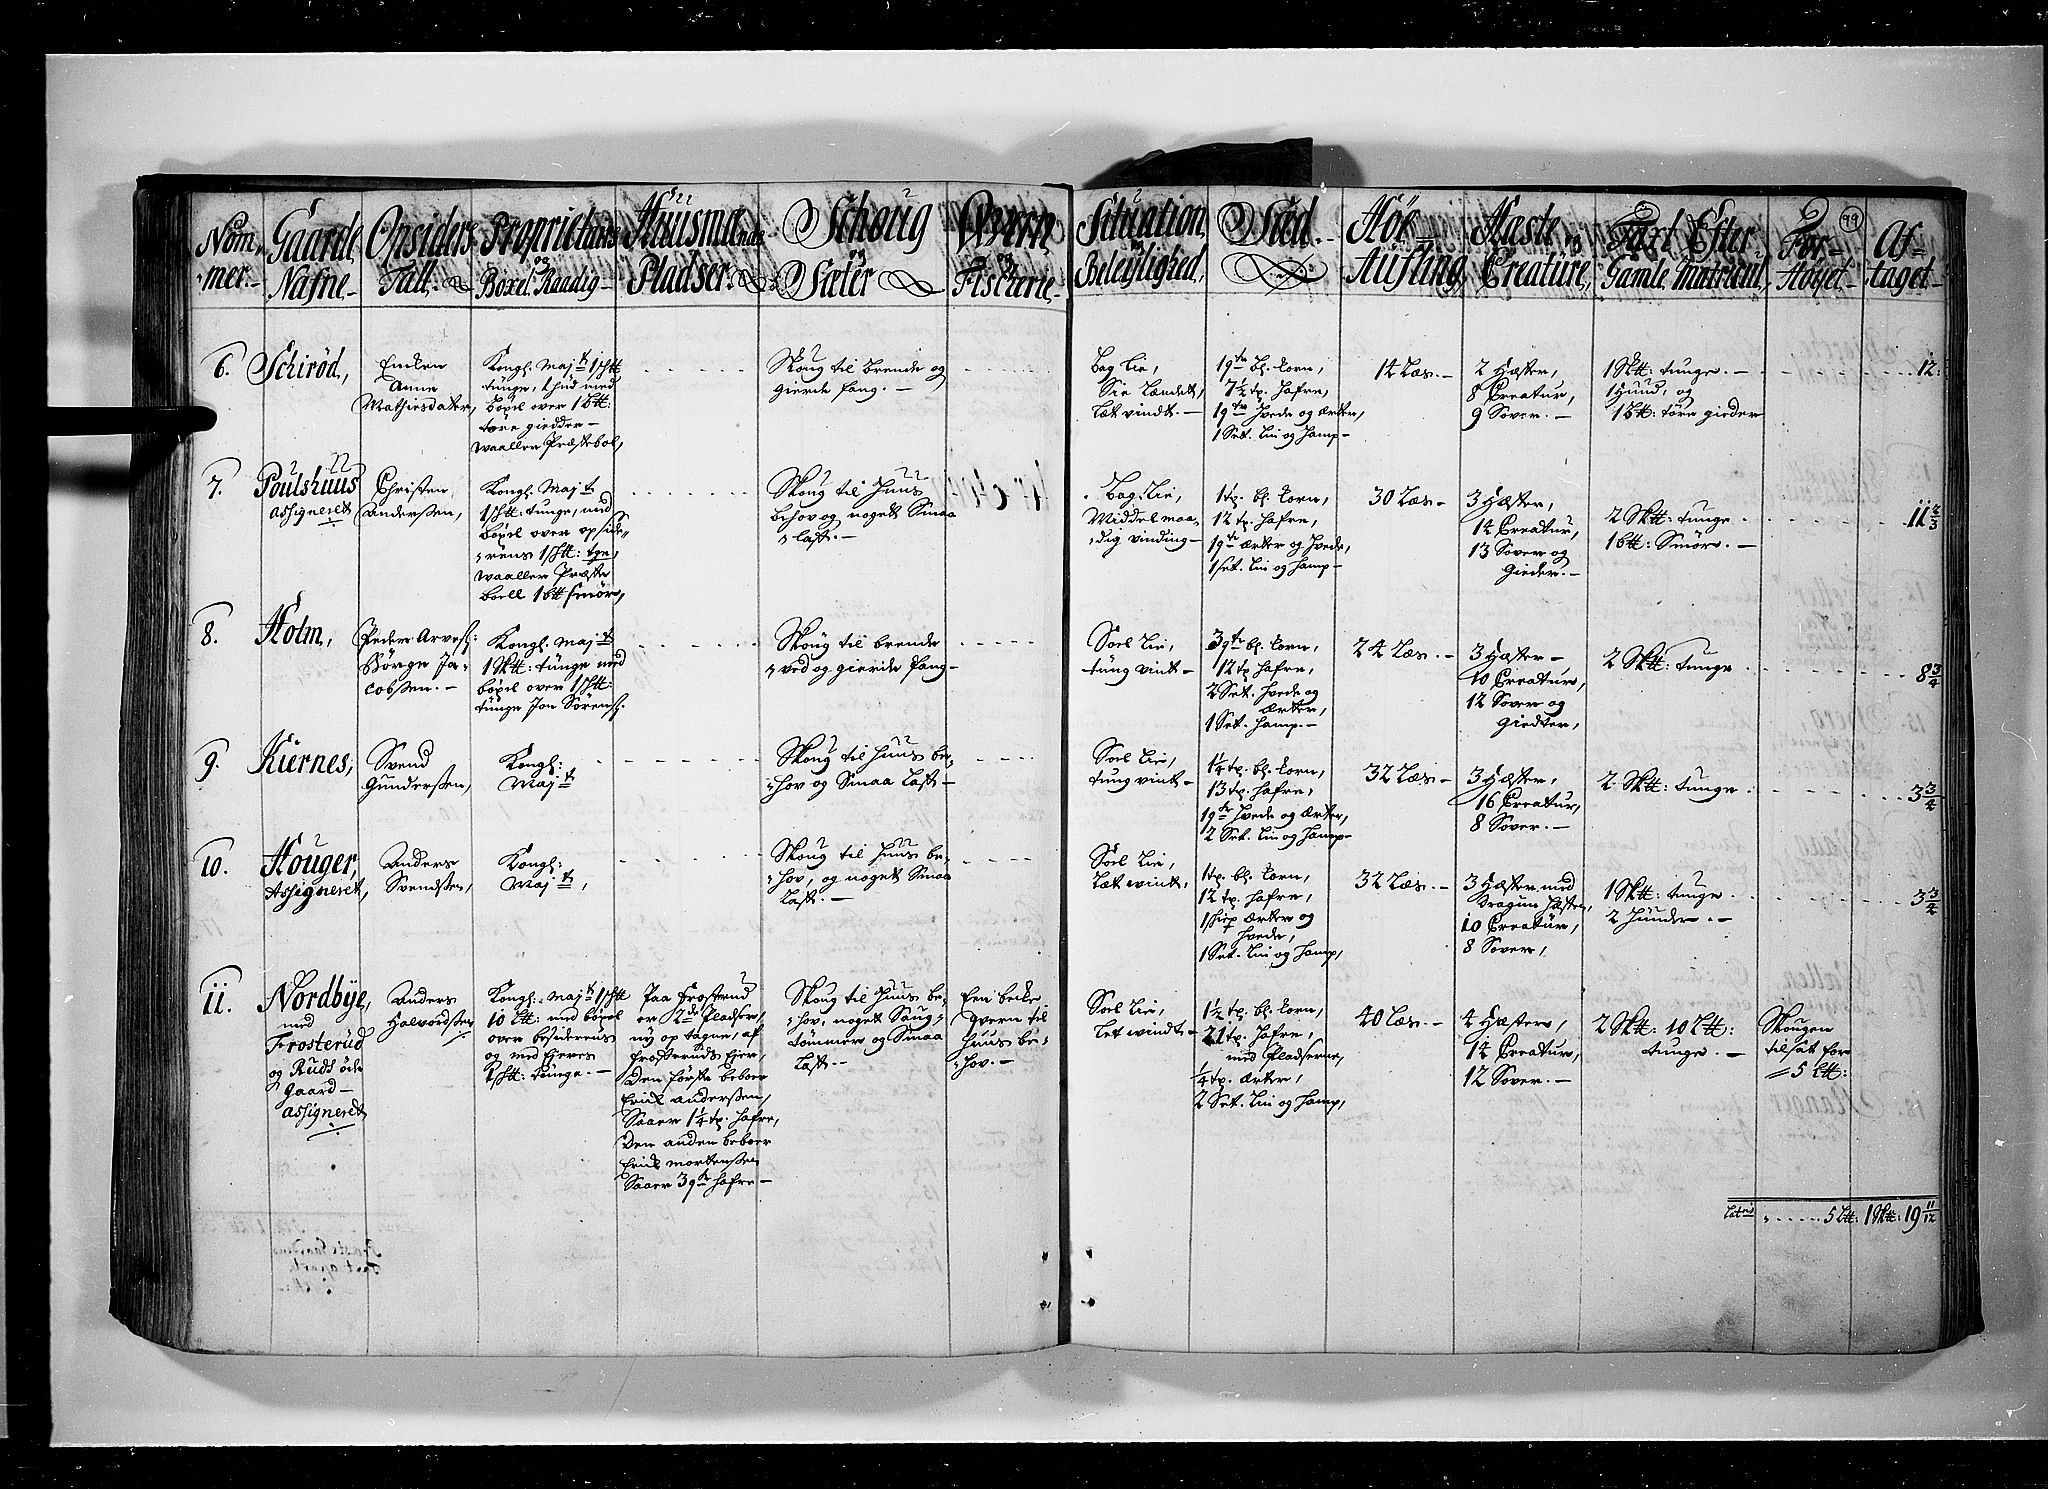 Nom,
mer.
Gaarde
Nafne
Opsiders
Tall
Proprietairs
og
Böxel Raadig
Huusmænds
Pladser
Schoug
og
Sæter
Qvern
og
Fischerie
Situation
og
Beleylighed
Sæd
Höe
Aufling
Hæste og
Creature
Taxt Efter
Gamle Matricul,
For-
höyet
99
Af-
taget
6.
Schiröd,
Encken
Anne
Mathiesdater,
Kongl. Maj.t 1 Sk℔
tunge, 1 hud med
böxel over 1 b℔:
törre giedder
waaller Præstebol,
Skoug til brende og
gierde fang.
Bag Lie,
Sie Lændet,
Læt vindt.
19tr bl. korn,
7½ tp. hafre,
19tr hvede og ærter,
1 Set. Lin og hamp
14 Læs.
2 Hæster,
8 Creatur,
9 Sover.
1 Sk℔: tunge.
1 hund, og
1 b℔: töre gieder
12.
7.
Poulshuus
assigneret
Christen
Andersen,
Kongl. Maj.t
1 Sk℔: tunge, med
böxel over opside-
rens 1 Sk℔: tge,
waaller Præste
boell 1 b℔ smör,
Skoug til huus
behov og noget Smaa
last.
Bag Lie,
Middelmaa-
dig vinding
1 tp. bl. korn,
12 tp. hafre,
19tr ærter og hvede,
1 set. Lin og hamp
30 Læs
3 Hæster,
14 Creatur,
13 Sover og
gieder.
2 Sk℔: tunge.
1 b℔: Smör.
11⅔
8.
Holm,
Peder Arves:
Börge Ja-
cobsen.
Kongl. Maj.t
1 Sk℔: tunge med
böxel over 1 Sk℔:
tunge Jon Sörens.
Skoug til brende
ved og gierde fang
Soel Lie,
tung vint
39tr bl. korn,
12 tp. hafre,
2 Set. hvede og
ærter,
1 Set. hamp.
24 Læs.
3 Hæster
10 Creatur,
12 Sover og
giedter,
2 Sk℔: tunge
8¾
9.
Kiernes,
Svend
Gundersen,
Kongl:
Maj.t
Skoug til huus be-
hov og Smaa Last
Soel Lie,
tung vint
1¼ tp. bl. korn,
13 tp. hafre,
19tr hvede og ærter,
2 Set. Lin og hamp
32 Læs
3 Hæster,
16 Creatur,
8 Sover.
2 Sk℔: tunge
3¾
10.
Houger,
Assigneret,
Anders
Svendsen,
Kongl:
Maj.t,
Skoug til huus be-
hov, og noget Smaa
Last.
Soel Lie,
Læt vint,
1 tp. bl. korn,
12 tp. hafre,
1 skiep ærter og
hvede,
1 Set. Lin og hamp,
32 Læs.
3 Hæster med
Dragun hæsten,
10 Creatur,
8 Sover,
1 Sk℔: tunge.
2 huuder.
3¾
11.
Nordbye,
med
Frosterud
og Ruds öde
gaard
assigneret
Anders
Halvorsen
Kongl: Maj.t 1 Sk℔
10 L℔: med böxel
over besiderens
og med Eieres
1 Sk℔: tunge.
Paa Frosterud
er 2de Pladser,
ny op tagne, af
frosteruds Eier,
Den förste beboer
Erick andersen,
Saaer 1¼ tp. hafre,
Den anden beboer
Erick mortensen
Saaer 39tr hafre
Skoug til huus be-
hov, noget Saug-
tömmer og Smaa
Last.
Een becke
Qvern til
huus be-
hov.
Soel Lie,
Let vindt
1½ tp. bl. korn,
21 tp. hafre,
med Pladserne,
¼ tp. ærter,
2 Set. Lin og hamp,
40 Læs.
4 Hæster,
14 Creatur,
12 Sover.
2 Sk℔: 10 L℔:
tunge.
Skougen
tilsat for
5 L℔:
Lateris 5 L℔: 1 Sk℔: 19 11/12